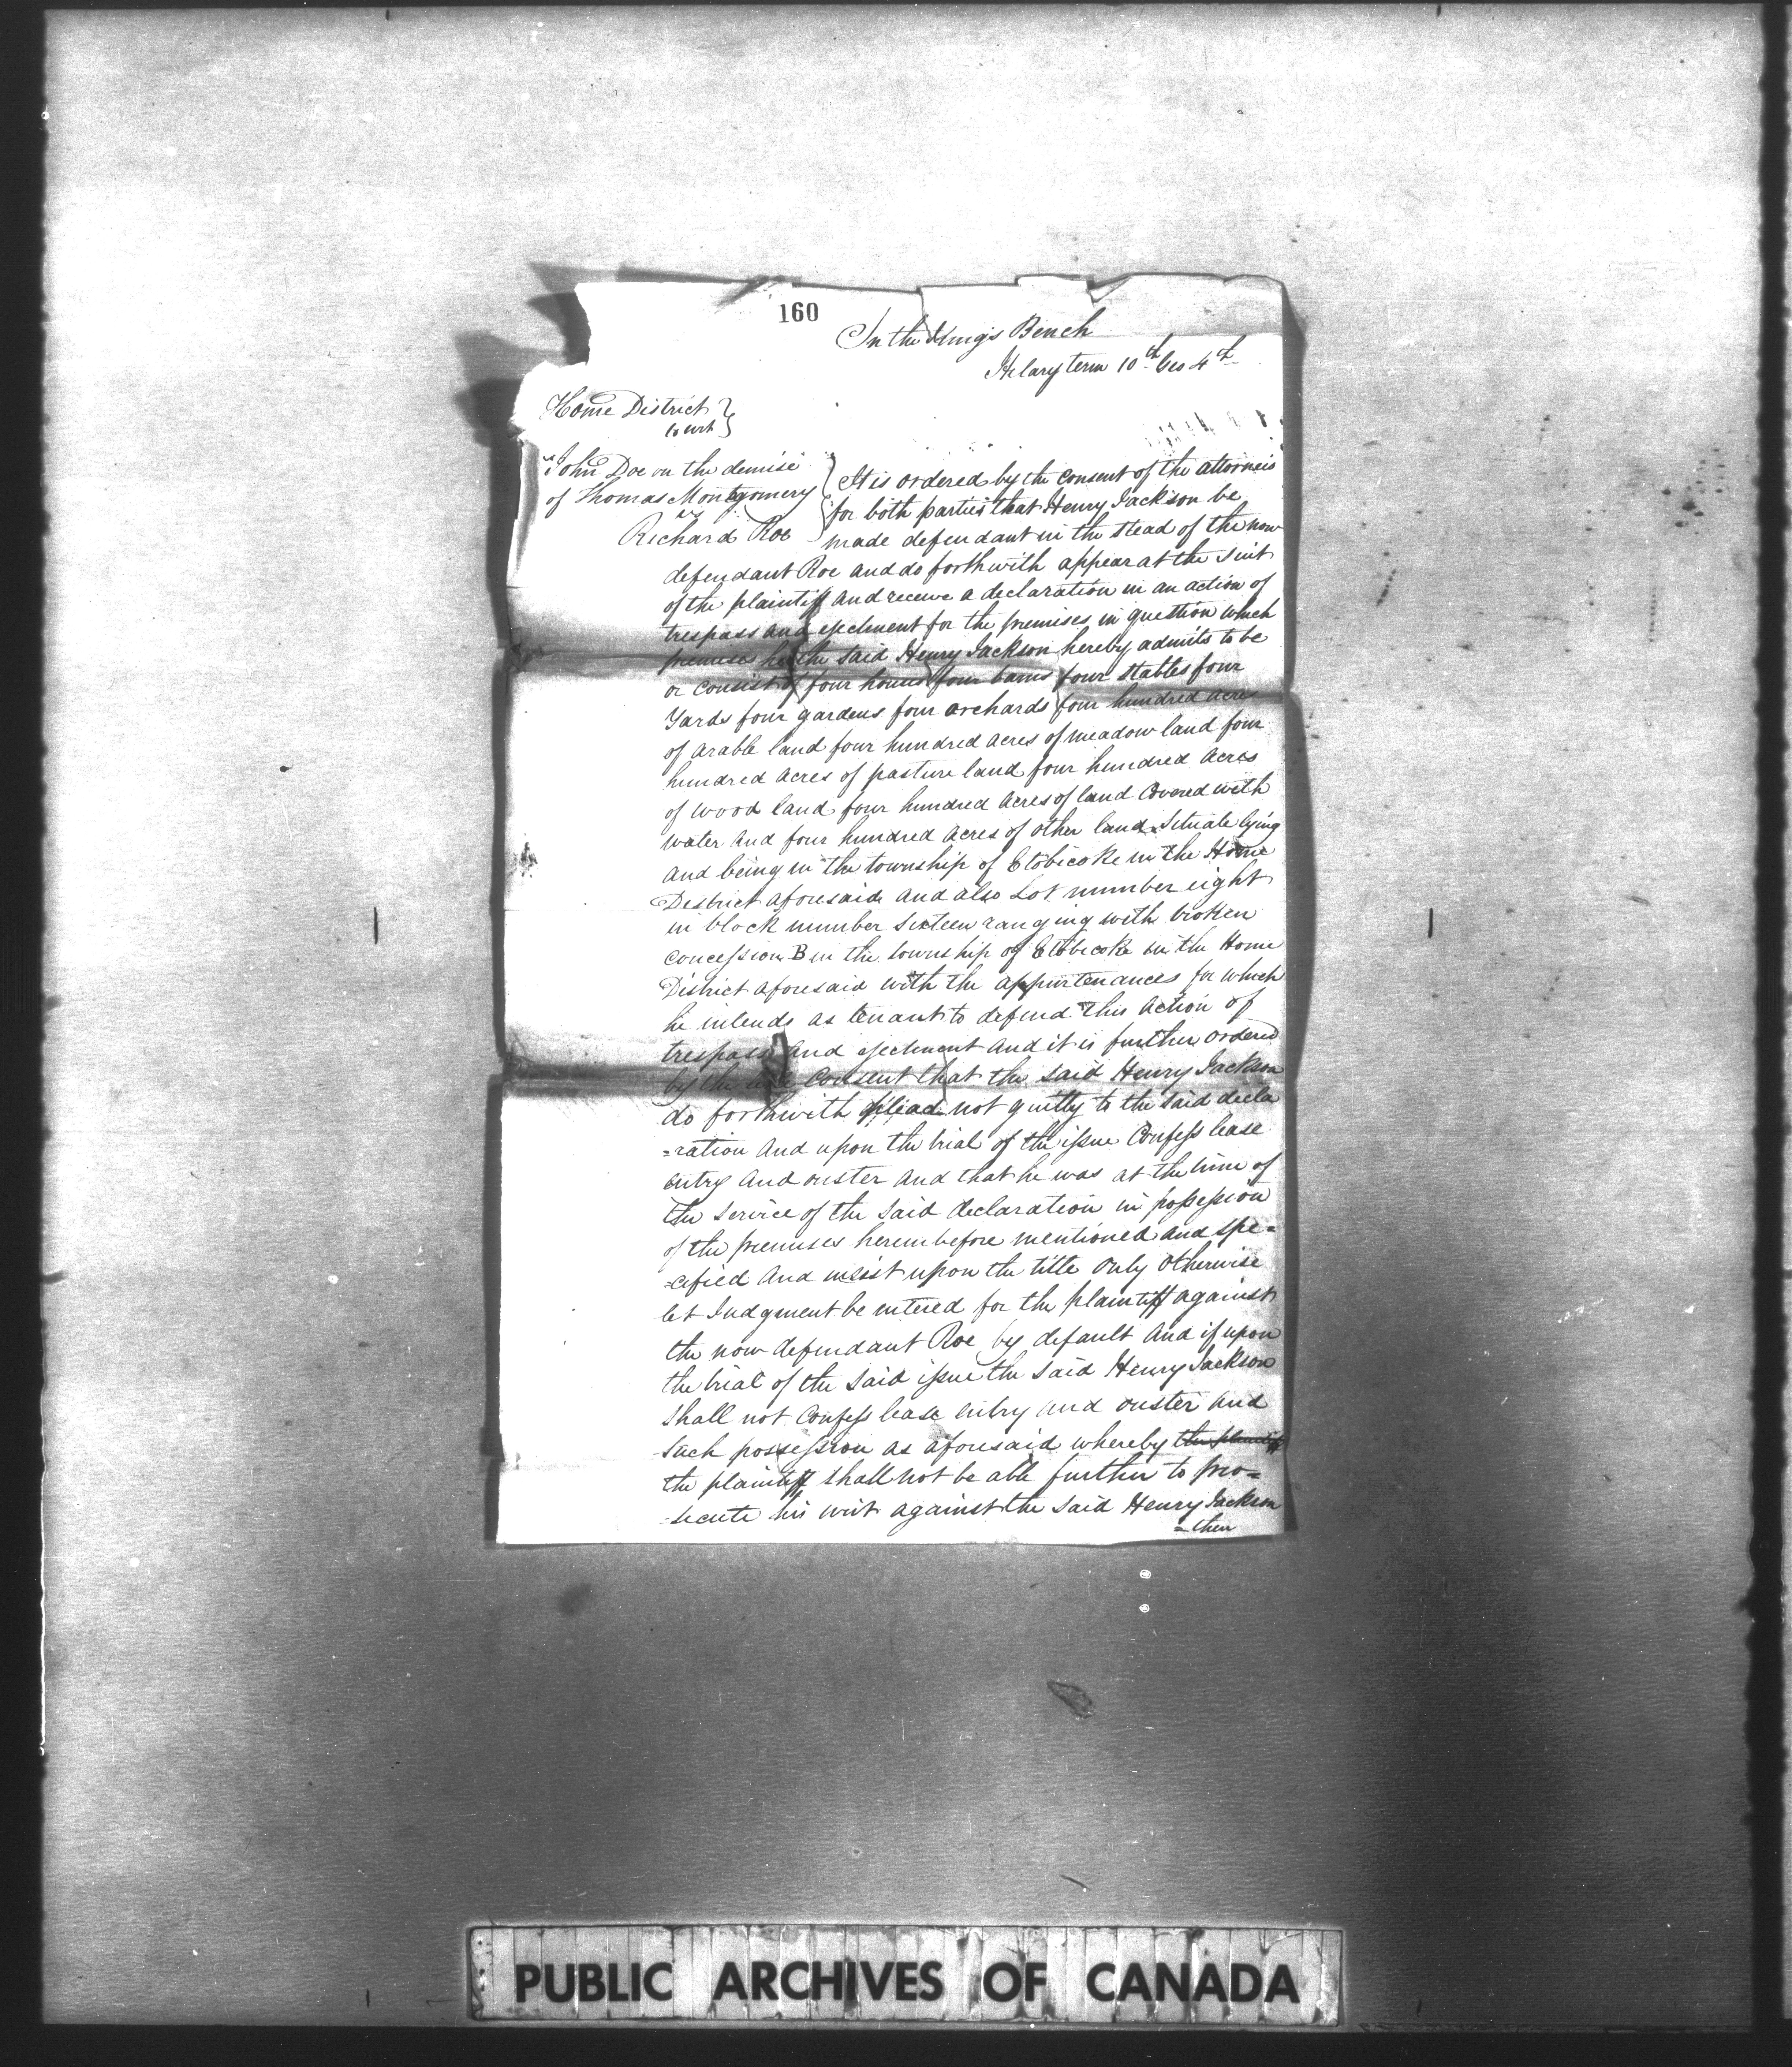 160
In the Kings Bench
Hilary term 10th Geo 4th
Home District }
to wit }
John Doe on the demise
of Thomas Montgomery
vs
Richard Roe
It is ordered by the consent of the attorneis
for both parties that Henry Jackson be
made defendant in the stead of the now
defendant Roe and do forthwith appear at the suit
of the plaintiff and receive a declaration in an action of
trespass and ejectment for the premises in question which
premises he the said Henry Jackson hereby admits to be
or consist of four houses four barns four stables four
Yards four gardens four orchards four hundred acres
of arable land four hundred acres of meadow land four
hundred acres of pasture land four hundred acres
of wood land four hundred acres of land Covered with
water and four hundred acres of other land Situate lying
and being in the township of Etobicoke in the Home
District aforesaid and also Lot number eight
in block number sixteen ranging with broken
concession B in the township of Etobicoke in the Home
District aforesaid with the appurtenances for which
he intends as tenant to defend this action of
trespass and ejectment and it is further ordered
by the Consent that the said Henry Jackson
do forthwith plead not guilty to the said decla
=ration and upon the trial of the issue Confess lease
entry and ouster and that he was at the time of
the service of the said declaration in possession
of the premises hereinbefore mentioned and spe=
-cified and insist upon the title only otherwise
let Judgment be entered for the plaintiff against
the now defendant Roe by default and if upon
the trial of the said issue the said Henry Jackson
shall not Confess lease entry and ouster and
such possession as aforesaid whereby the plaintiff
the plaintiff shall not be able further to pro=
-secute his writ against the said Henry Jackson
= then
PUBLIC ARCHIVES OF CANADA